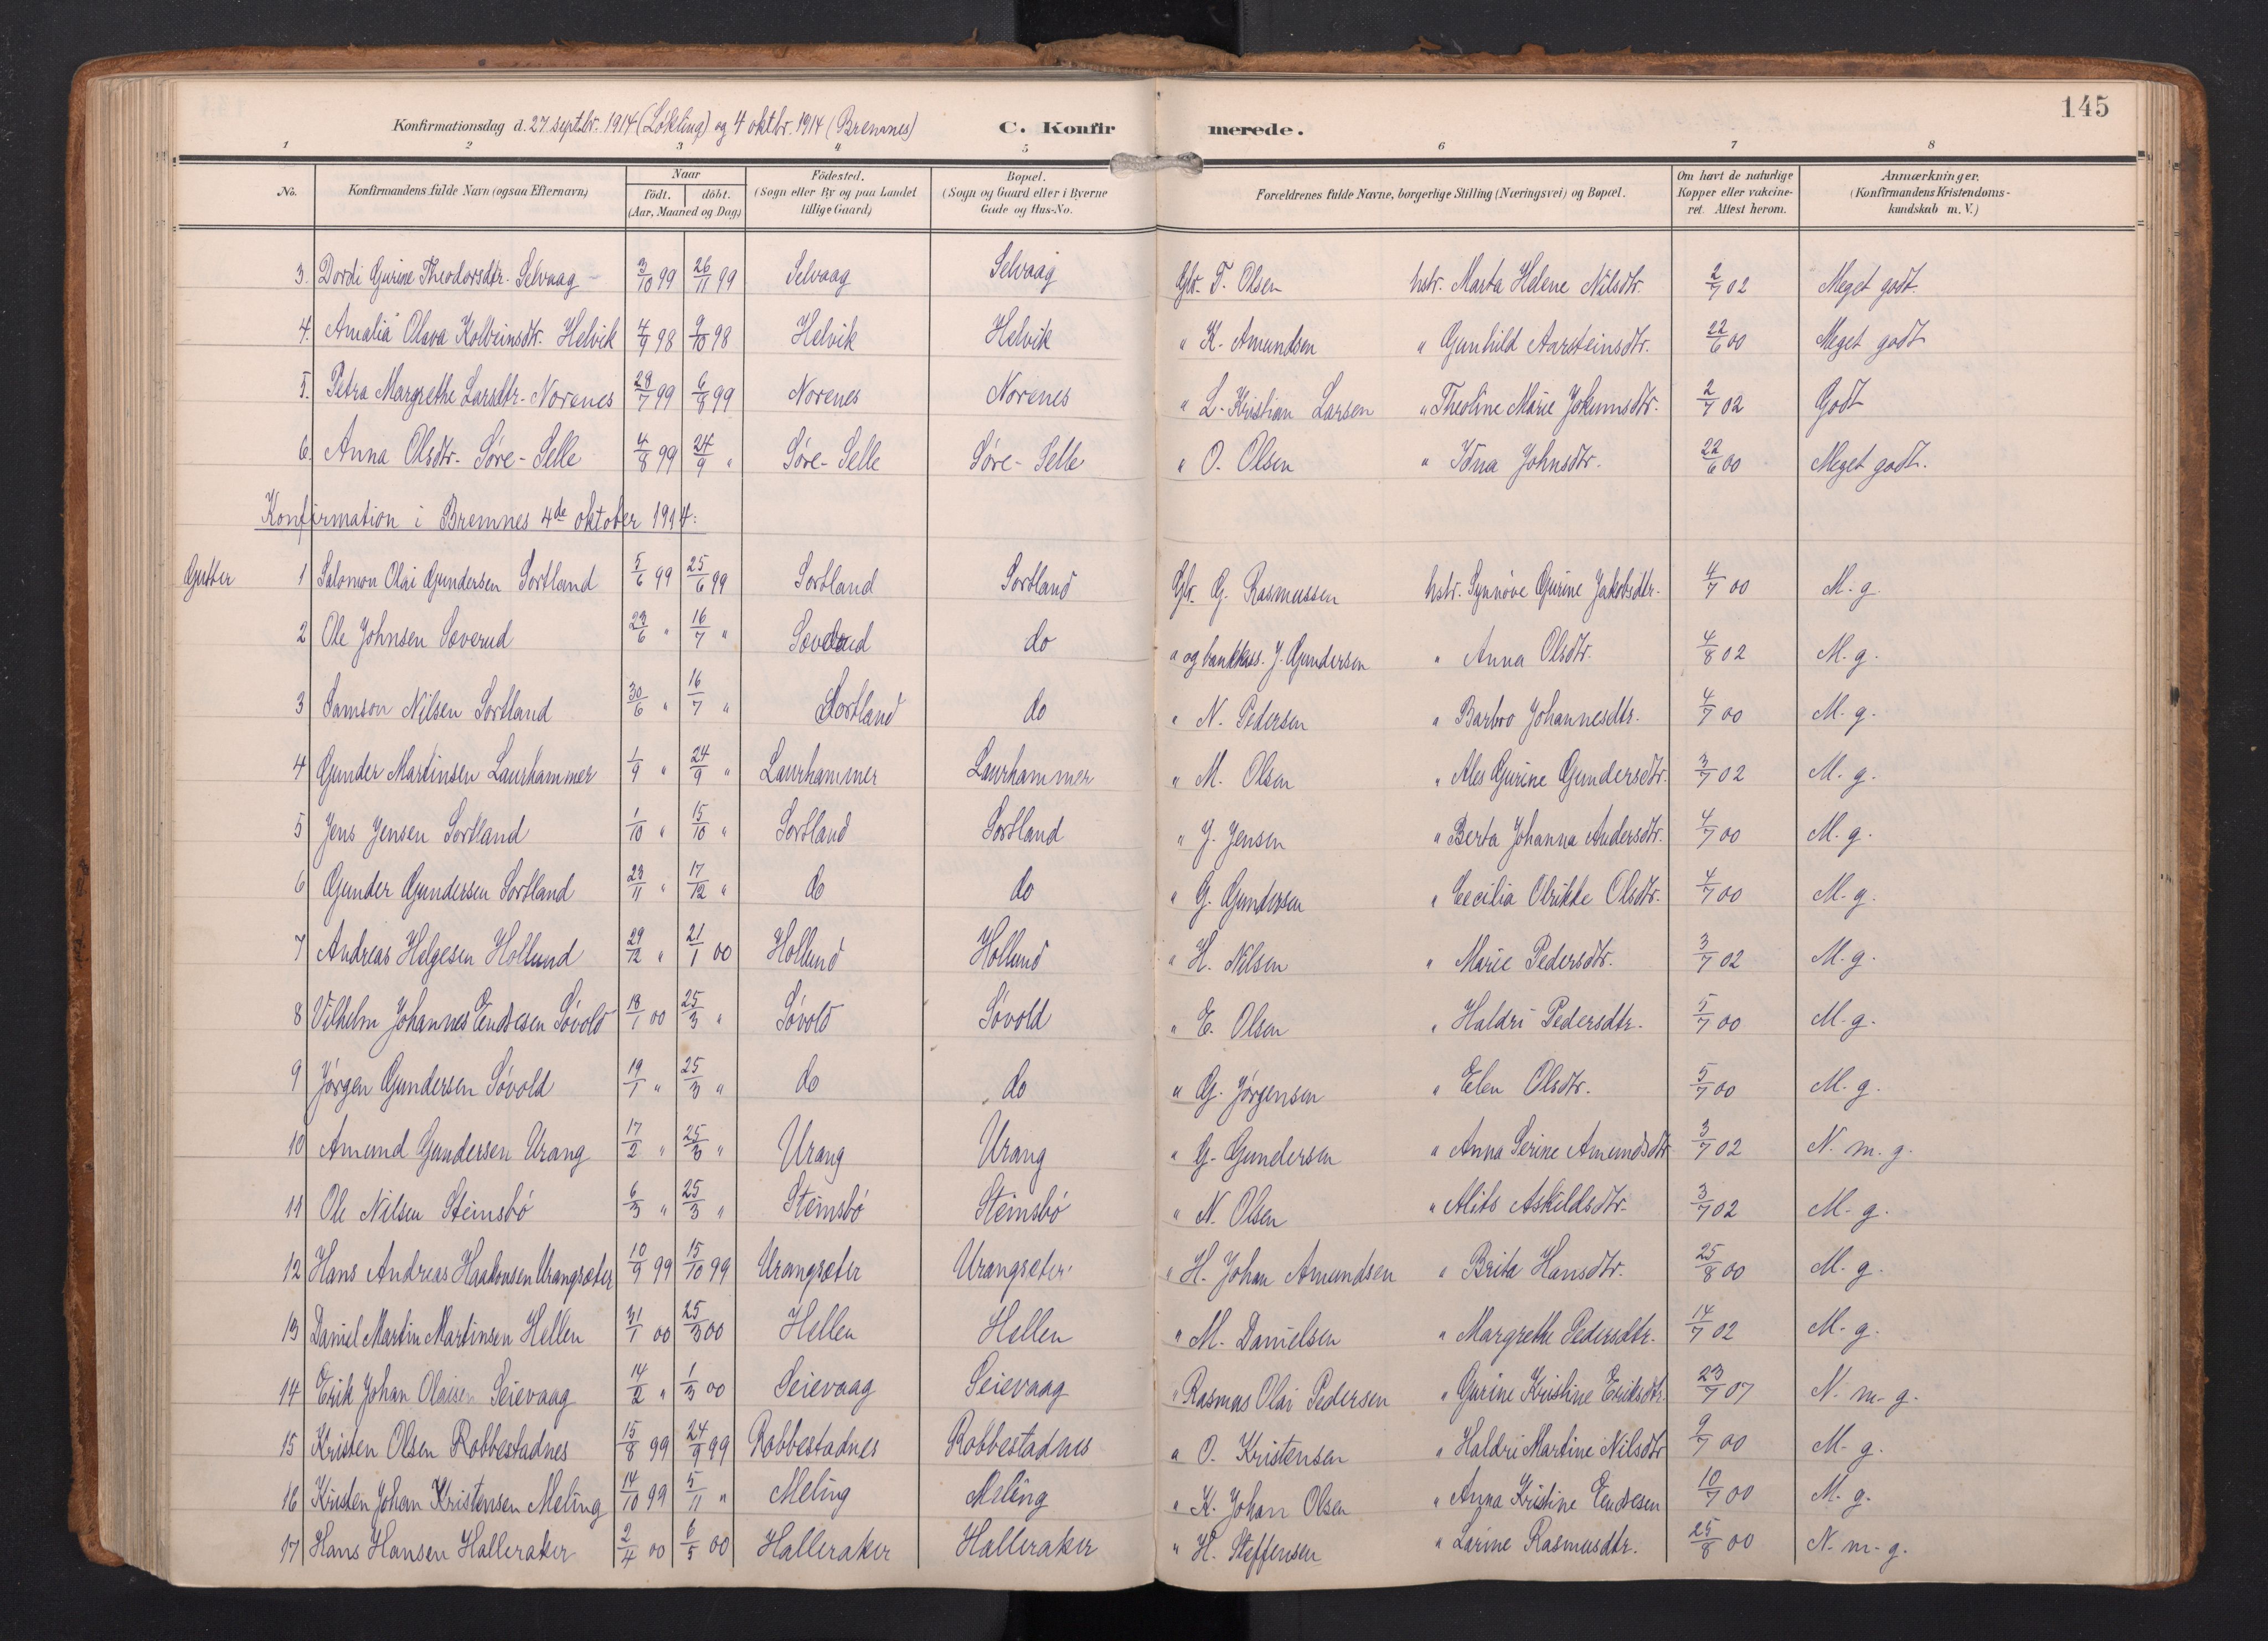 145
Konfirmationsdag d. 27 septbr. 1914 (Løkling) og 4 oktbr. 1914 (Bremnes) C. Konfirmerede.
1 2 3 4 5 6 7 8
No. Konfirmandens fulde Navn (ogsaa Efternavn) Naar födt. döbt. (Aar, Maaned og Dag) Födested. (Sogn eller By og paa Landet tillige Gaard) Bopæl. (Sogn og Gaard eller i Byerne Gade og Hus-No. Forældrenes fulde Navne, borgerlige Stilling (Næringsvei) og Bopæl. Om havt de naturlige Kopper eller vakcineret. Attest herom. Anmærkninger. (Konfirmandens Kristendomskundskab m. V.)
3. Dordi Gurine Theodorsdtr. Selvaag 3/10 99 26/11 99 Selvaag Selvaag Gbr. T. Olsen hstr. Marta Helene Nilsdtr. 2/7 02 Meget godt.
4. Amalia Olava Kolbeinsdtr. Helvik 4/9 98 9/10 98 Helvik Helvik " K. Amundsen " Gunhild Aarsteinsdtr. 22/6 00 Meget godt
5. Petra Margrethe Larsdtr. Norenes 28/7 99 6/8 99 Norenes Norenes " L. Kristian Larsen " Theoline Marie Jokumsdtr. 2/7 02 Godt
6. Anna Olsdtr. Søre-Selle 4/8 99 24/9 " Søre-Selle Søre-Selle " O. Olsen " Johnsdtr. 22/6 00 Meget godt.
Konfirmation i Bremnes 4de oktober 1914.
Gutter 1 Salomon Olai Gundersen Sortland 5/6 99 25/6 99 Sortland Sortland Gbr. G. Rasmussen hstr. Synnøve Gurine Jakobsdtr. 4/7 00 M. g.
2 Ole Johnsen Sæverud 23/6 " 16/7 " do " og bankkass. J. Gundersen " Anna Olsdtr. 4/8 02 M. g.
3 Samson Nilsen Sortland 30/6 " 16/7 " Sortland do " N. Pedersen " Barbro Johannesdtr. 4/7 00 M. g.
4 Gunder Martinsen Laurhammer 1/9 " 24/9 " Laurhammer Laurhammer " M. Olsen " Ales Gurine Gundersdtr. 3/7 02 M. g.
5 Jens Jensen Sortland 1/10 " 15/10 " Sortland Sortland " J. Jensen " Berta Johanna Andersdtr. 4/7 00 M. g.
6 Gunder Gundersen Sortland 23/11 " 17/12 " do do " G. Gundersen " Cecilia Olrikke Olsdtr. 4/7 00 M. g.
7 Andreas Helgesen Hollund 29/12 " 21/1 00 Hollund Hollund " H. Nilsen " Marie Pedersdtr. 3/7 02 M. g.
8 Vilhelm Johannes Endresen Søvold 18/1 00 25/3 " Søvold Søvold " E. Olsen " Haldri Pedersdtr. 5/7 00 M. g.
9 Jørgen Gundersen Søvold 19/1 " 25/3 " do do " G. Jørgensen " Elen Olsdtr. 5/7 00 M. g.
10 Amund Gundersen Urang 17/2 " 25/3 " Urang Urang " G. Gundersen " Anna Serine Amundsdtr 3/7 02 N. m. g.
11 Ole Nilsen Steinsbø 6/3 " 25/3 " Steinsbø Steinsbø " N. Olsen " Askildsdtr. 3/7 02 M. g.
12 Hans Andreas Haakonsen Urangsæter 10/9 99 15/10 99 Urangsæter Urangsæter " H. Johan Amundsen " Brita Hansdtr. 25/8 00 M. g.
13 Daniel Martin Martinsen Hellen 31/1 00 25/3 00 Hellen Hellen " M. Danielsen " Margrethe Pedersdtr. 14/7 02 M. g.
14 Erik Johan Olaisen Seievaag 14/2 " 1/3 00 Seievaag Seievaag " Rasmus Olai Pedersen " Gurine Kristine Eriksdtr. 23/7 07 N. m. g.
15 Kristen Olsen Robbestadnes 15/8 99 24/9 99 Robbestadnes Robbestadnes " O. Kristensen " Haldri Martine Nilsdtr 9/7 00 M. g.
16 Kristen Johan Kristensen Meling 14/10 99 5/11 " Meling Meling " K. Johan Olsen " Anna Kristine Endresen 10/7 00 M. g.
17 Hans Hansen Halleraker 2/4 00 6/5 00 Halleraker Halleraker " H. Steffensen " Larine Rasmusdtr. 25/8 00 N. m. g.